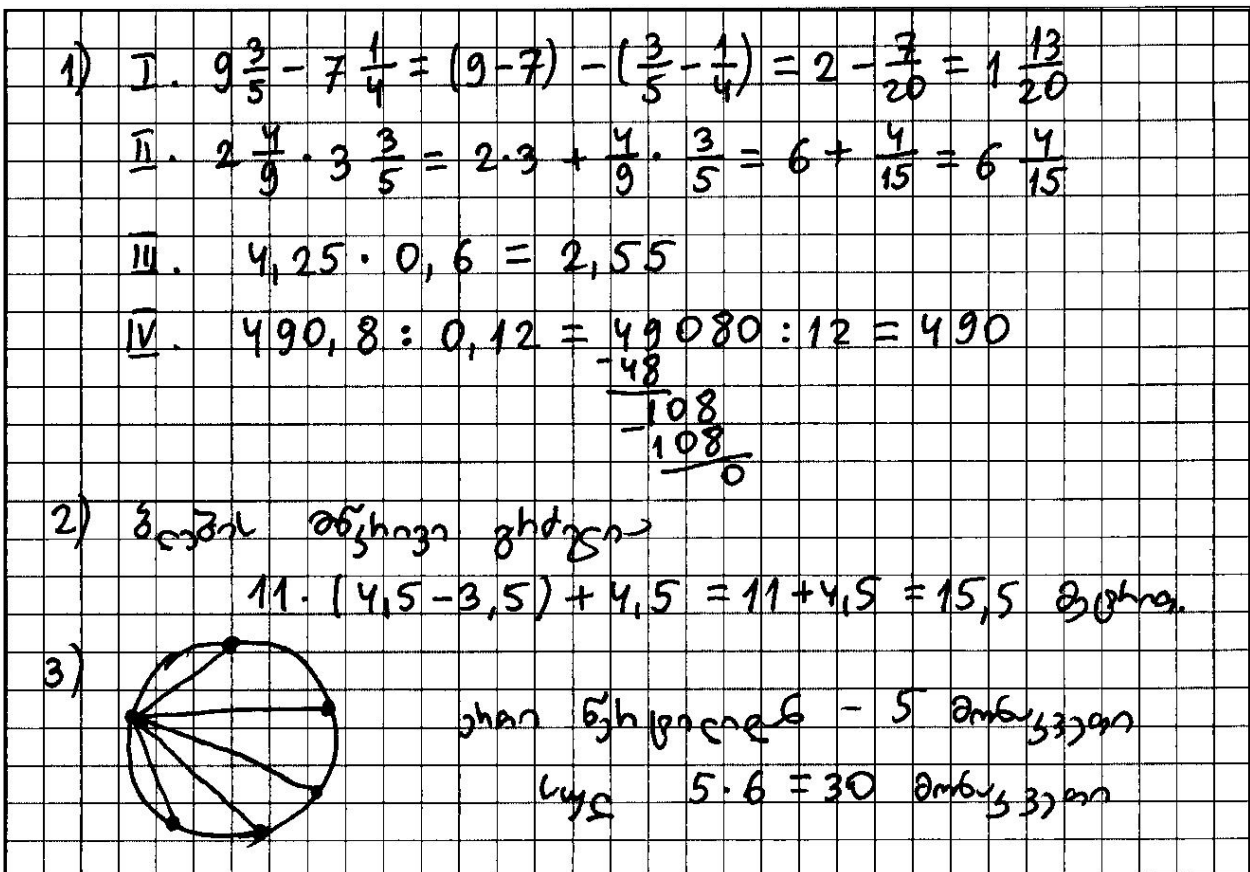 1) I. 9 3/5 - 7 1/4 = (9-7) - (3/5 - 1/4) = 2 - 7/20 = 1 13/20
II. 2 4/9 · 3 3/5 = 2·3 + 4/9 · 3/5 = 6 + 4/15 = 6 4/15
III. 4,25 · 0,6 = 2,55
IV. 490,8 : 0,12 = 49080 : 12 = 490
-48
108
-108
0
2) მწკრივი გრძელი
11 · (4,5-3,5) + 4,5 = 11+4,5 = 15,5
3)
ერთი წერტილიდან - 5 მონაკვეთი
სულ 5·6 = 30 მონაკვეთი